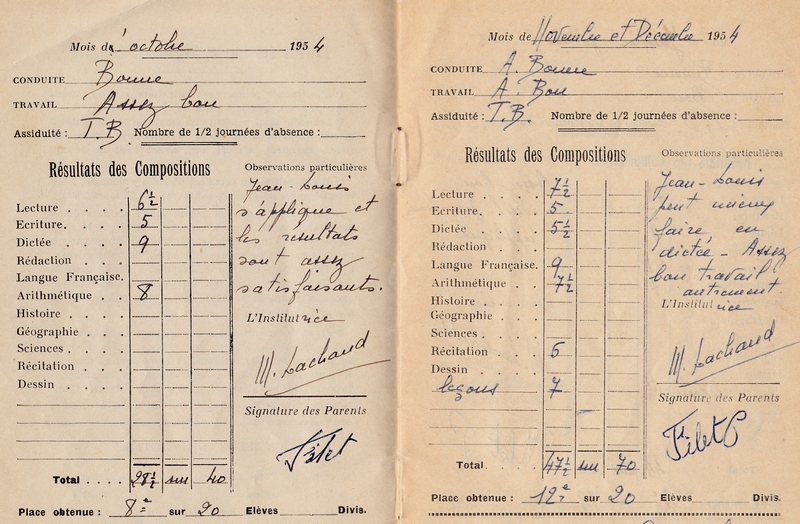 Mois d'octobre 1954
CONDUITE Bonne
TRAVAIL Assez bon
Assiduité : T.B. Nombre de 1/2 journées d'absence :
Résultats des Compositions
Observations particulières
Lecture . . . . 6 1/2
Ecriture. . . . 5
Dictée . . . . 9
Rédaction . . . .
Langue Française.
Arithmétique . . . 8
Histoire . . . .
Géographie . . .
Sciences . . . .
Récitation . . .
Dessin . . . .
Jean-Louis
s'applique et
les résultats
sont assez
satisfaisants.
L'Institutrice
M. Lachaud
Signature des Parents
Filet
Total . . . . 28 1/2 sur 40
Place obtenue : 8e sur 20 Elèves Divis.
Mois de Novembre et Décembre 1954
CONDUITE A. Bonne
TRAVAIL A. Bon
Assiduité : T.B. Nombre de 1/2 journées d'absence :
Résultats des Compositions
Observations particulières
Lecture . . . . 7 1/2
Ecriture. . . . 5
Dictée . . . . 5 1/2
Rédaction . . . .
Langue Française. 9
Arithmétique . . . 7 1/2
Histoire . . . .
Géographie . . .
Sciences . . . .
Récitation . . . 6
Dessin . . . .
leçons 7
Jean-Louis
peut mieux
faire en
dictée - Assez
bon travail
autrement.
L'Institutrice
M. Lachaud
Signature des Parents
Filet
Total . . . . 47 1/2 sur 70
Place obtenue : 12e sur 20 Elèves Divis.